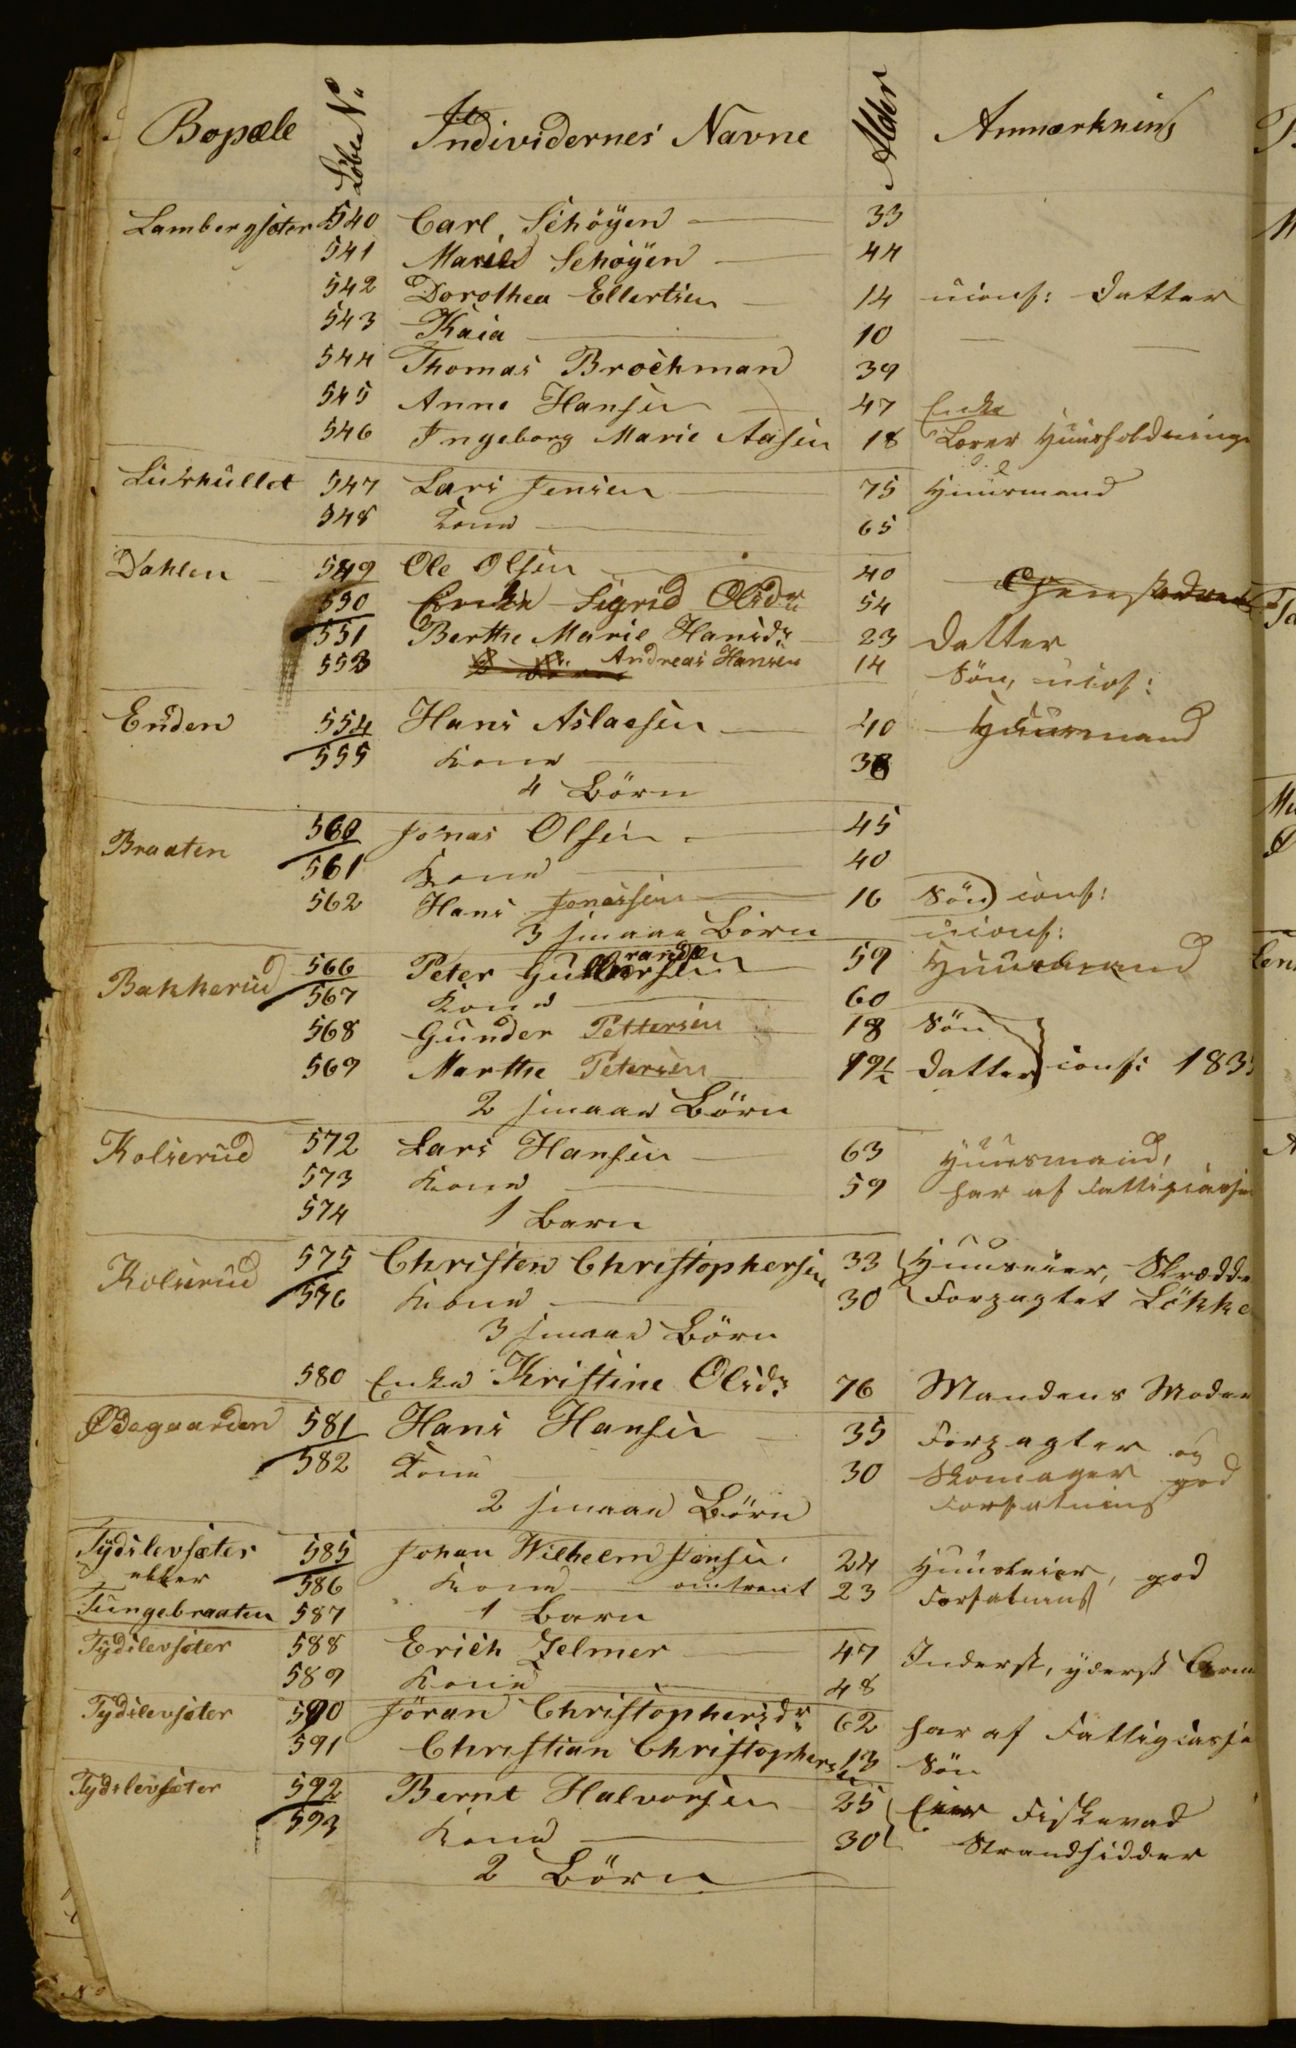 Bopæle Løbe No Individernes Navne Alder Anmærkning
Lambergsæter 540 Carl Schöyen 33
541 Maria Schöyen 44
542 Dorothea Ellertsen 14 uconf: Datter
543 Kaia 10 — —
544 Thomas Brochman 39
545 Anne Hansen 47 Enke
546 Ingeborg Marie Aasen 18 Lærer Huusholdning
547 Lars Jensen 75 Huusmand
548 Kone 65
Dahlen 549 Ole Olsen 40
550 Enke Sigrid Olsdr 54
551 Berthe Marie Hansdr 23 Datter
553 Andreas Hansen 14 Sön, uconf:
Enden 554 Hans Aslaksen 40 Huusmand
555 Kone 38
4 Börn
Braaten 560 Jonas Olsen 45
561 Kone 40
562 Hans Jonassen 16 Sön conf:
3 smaae Börn uconf:
Bakkerud 566 Peter Gulbrandsen 59 Huusmand
567 Kone 60
568 Gunder Pettersen 18 Sön
569 Marthe Petersen 19½ Datter conf: 183
2 smaae Börn
Kolserud 572 Lars Hansen 63 Huusmand,
573 Kone 59 har af Fattigcasse
574 1 Barn
Kolserud 575 Christen Christophersen 33 Huuseier, Skrædde
576 Kone 30 Forpagtet Lökke
3 smaae Börn
580 Enke Kristine Olsdr 76 Mandens Moder
Ødegaarden 581 Hans Hansen 35 Forpagter og
582 Kone 30 Skomager god
2 smaae Börn Forfatning
Tydslevsæter 585 Johan Wilhelm Jensen 24 Huuseier, god
eller 586 Kone omtrent 23 Forfatning
Tungebraaten 587 1 Barn
Tydslevsæter 588 Erich Zelmer 47 Inderst, yderst Arm
589 Kone 48
Tydslevsæter 590 Jöran Christophersdr 62 har af Fattigcasse
591 Christian Christophersen 13 Sön
Tydslevsæter 592 Bernt Halvorsen 25 Eier Fiskevad
593 Kone 30 Strandsidder
2 Börn